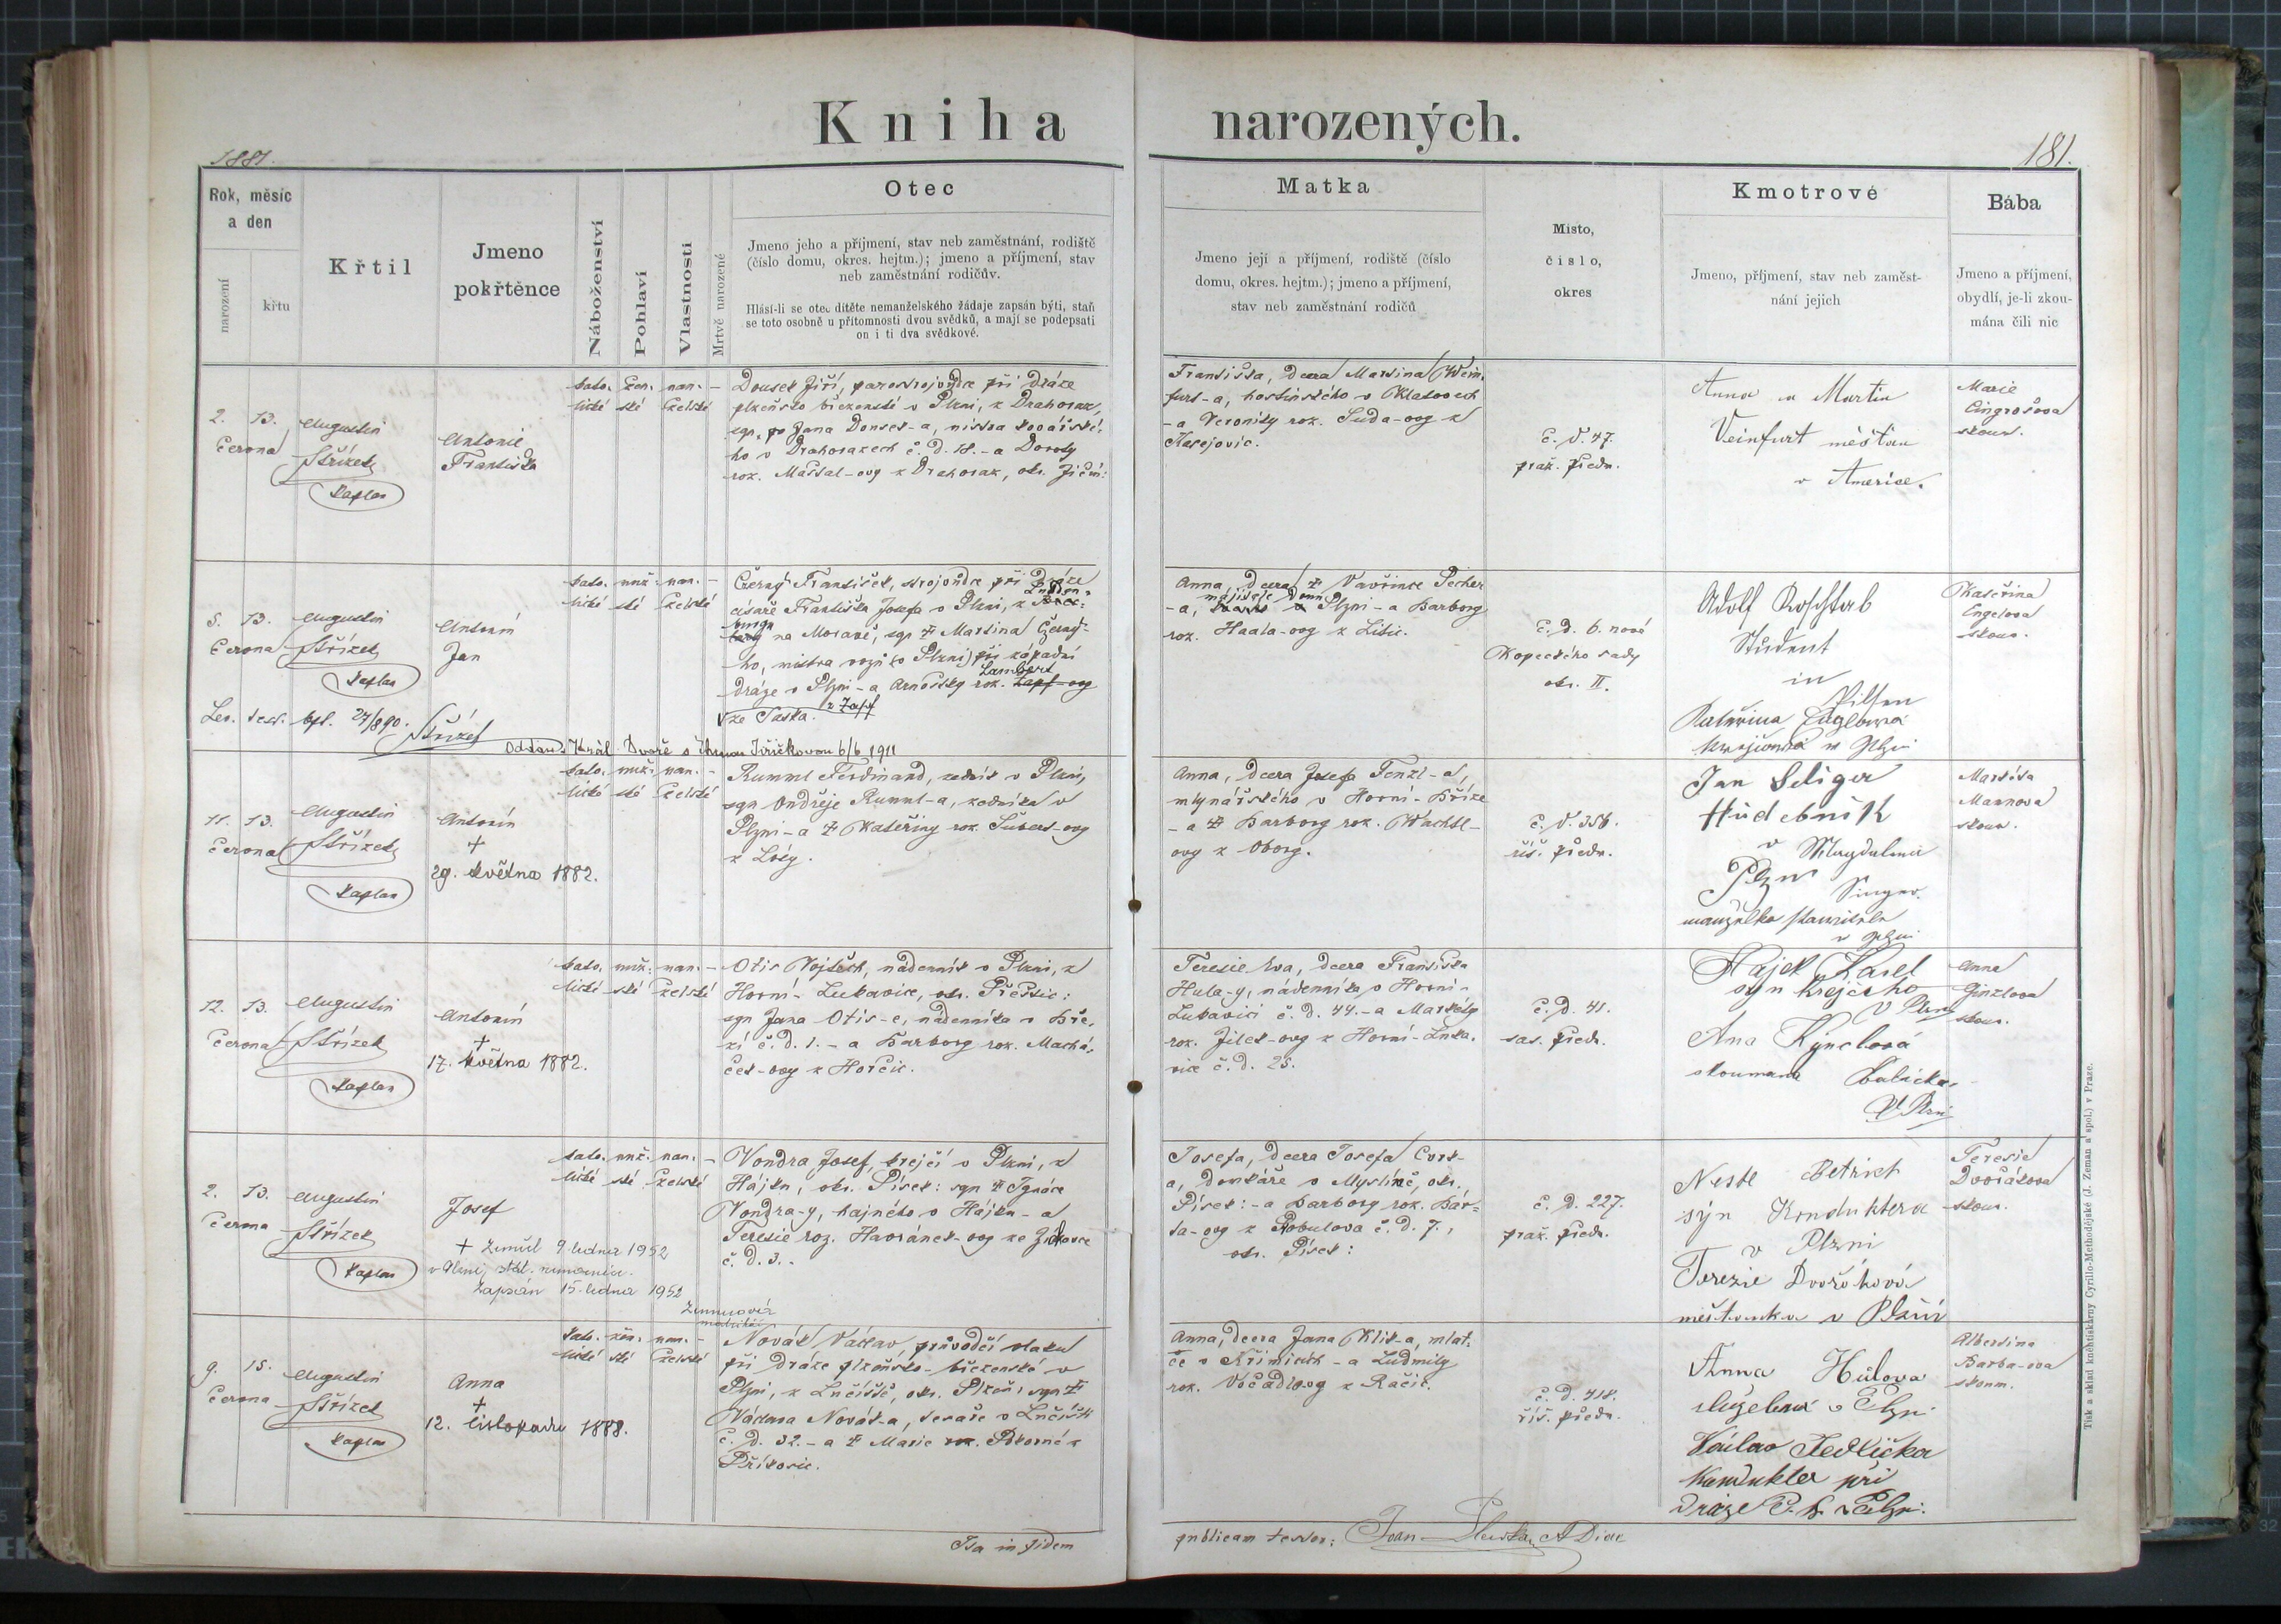 Kniha narozených.
1881.
181.
Rok, měsíc
a den
narození
křtu
Křtil
Jmeno
pokřtěnce
Náboženství
Pohlaví
Vlastnosti
Mrtvě narozené
Otec
Jmeno jeho a příjmení, stav neb zaměstnání, rodiště
(číslo domu, okres. hejtm.); jmeno a příjmení, stav
neb zaměstnání rodičův.
Hlásí-li se otec dítěte nemanželského žádaje zapsán býti, staň
se toto osobně u přítomnosti dvou svědků, a mají se podepsati
on i ti dva svědkové.
Matka
Jmeno její a příjmení, rodiště (číslo
domu, okres. hejtm.); jmeno a příjmení,
stav neb zaměstnání rodičů
Místo,
číslo,
okres
Kmotrové
Jmeno, příjmení, stav neb zaměst-
nání jejich
Bába
Jmeno a příjmení,
obydlí, je-li zkou-
mána čili nic
2. 13.
června
Augustin
Střízek
kaplan
Antonie
Františka
kato. žen. man. -
lické ské želské
Dousek Jiří, parostrojvůdce při dráze
plzeňsko březenské v Plzni, z Drahoraz,
syn, po Jana Dousek-a, mistra kovářské-
ho v Drahorazech č. d. 18. - a Doroty
roz. Maššal-ovy z Drahoraz, okr. Jičín:
Františka, dcera Martina Wein-
furt-a, hostinského v Klatovech
- a Veroniky roz. Suda-ovy z
Kařejovic.
č. d. 47.
praž. předm.
Anna a Martin
Veinfurt měštan
v Americe.
Marie
Cingrošova
zkoum.
5. 13.
června
Augustin
Střízek
kaplan
Antonín
Jan
kato. muž. man. -
lické ské želské
Czerný František, strojvůdce při dráze
císaře Františka Josefa v Plzni, z
na Moravě, syn † Martina Czerný-
ho, mistra vozů (v Plzni) při západní
Lambert
dráze v Plzni - a Arnoštky roz. Zapf-ovy
ze Saska. z Zapf
Anna, dcera † Vavřince Pecher
majitele domu
-a, v Plzni - a Barbory
roz. Haala-ovy z Litic.
č. d. 6. nové
Kopeckého sady
okr. II.
Adolf Roschtab
Student
in
Pilsen
Kateřina Englova
krejčová v Plzni
Kateřina
Engelova
zkoum.
Lev. test. bpt. 27/8 90. Střízek
Oddán Král. Dvoře s Jiřičkovou 6/6 1911
11. 13.
června
Augustin
Střízek
kaplan
Antonín
†
29. května 1882.
kato. muž. man. -
lické ské želské
Rumml Ferdinand, zedník v Plzni,
syn Ondřeje Rumml-a, zedníka v
Plzni - a † Kateřiny roz. Šubert-ovy
z Lvíg.
Anna, dcera Josefa Tenzl-a,
mlynářského v Horní-Bříze
- a † Barbory roz. Wachtl-
ovy z Obory.
č. d. 356.
říš. předm.
Jan Seliger
Hudebník
v Plzni
Magdalena
Singer
manželka stavitele
v Plzni
Markéta
Mannova
zkoum.
12. 13.
června
Augustin
Střízek
kaplan
Antonín
†
17. května 1882.
kato. muž. man. -
lické ské želské
Otis Vojtěch, nádenník v Plzni, z
Horní-Lukavice, okr. Přeštic:
syn Jana Otis-e, nádenníka v Bře-
zí č. d. 1. - a Barbory roz. Machá-
ček-ovy z Horčic.
Teresie Eva, dcera Františka
Hula-y, nádenníka v Horní-
Lukavici č. d. 44. - a Markéty
roz. Jílek-ovy z Horní-Luka-
vice č. d. 25.
č. d. 41.
sas. předm.
Hajek Karel
syn krejčího
v Plzni
Ana Kynclová
zkoumaná babička
v Plzni
Anna
Ginzlova
zkoum.
2. 13.
června
Augustin
Střízek
kaplan
Josef
† Zemřel 9. ledna 1952
v Plzni, stát. nemocnice.
Zapsán 15. ledna 1952
kato. muž. man. -
lické ské želské
Vondra Josef, krejčí v Plzni, z
Hájku, okr. Písek: syn † Ignáce
Vondra-y, hajného v Hájku - a
Teresie roz. Havránek-ovy ze Zátkovce
č. d. 3..
Josefa, dcera Josefa Cvrk-
a, domkáře v Myslínč, okr.
Písek: - a Barbory roz. Bár-
ta-ovy z Probulova č. d. 7.,
okr. Písek:
č. d. 227.
praž. předm.
Neste Betrich
syn Konduktera
v Plzni
Terezie Dvořáková
měštanka v Plzni
Teresie
Dvořákova
zkoum.
9. 15.
června
Augustin
Střízek
kaplan
Anna
†
12. listopadu 1888.
kato. žen. man. -
lické ské želské
Novák Václav, průvodčí vlaku
při dráze plzeňsko-březenské v
Plzni, z Lučiště, okr. Plzeň: syn †
Václava Novák-a, tesaře v Lučišti
č. d. 32. - a † Marie roz. Pokorné z
Příkosic.
Anna, dcera Jana Klik-a, mlat-
če v Křimicích - a Ludmily
roz. Vočadlo-ovy z Račic.
č. d. 418.
říš. předm.
Anna Hůlova
služebná v Plzni
Václav Jedlička
Kondukter při
dráze P. b. v Plzni.
Albertina
Barba-ova
zkoum.
Ita in fidem publicam testor:
Tisk a sklad kněhtiskárny Cyrillo-Methodějské (J. Zeman a spol.) v Praze.